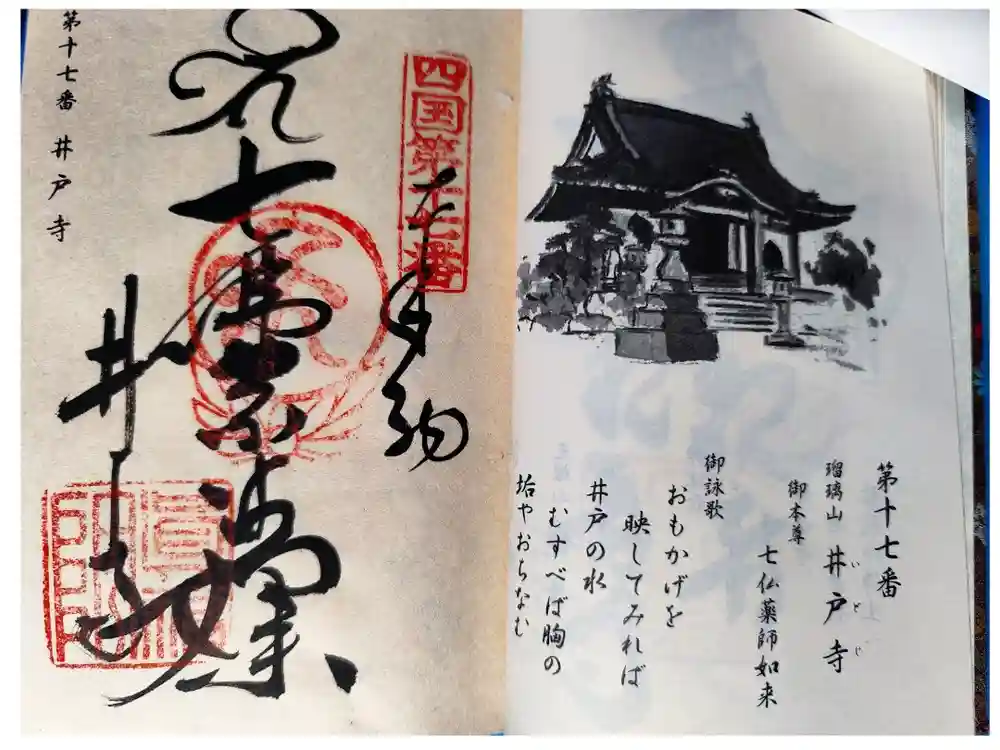 第十七番
瑠璃山 井戸寺
いどじ
御本尊
七仏薬師如来
御詠歌
おもかげを
映してみれば
井戸の水
むすべば胸の
垢やおちなむ
四国第十七番
奉納
七佛薬師
井戸寺
第十七番 井戸寺